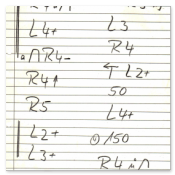 L4+
R4-
R4↑
R5
L2+
L3+
L3
R4
L2+
50
L4+
150
R4